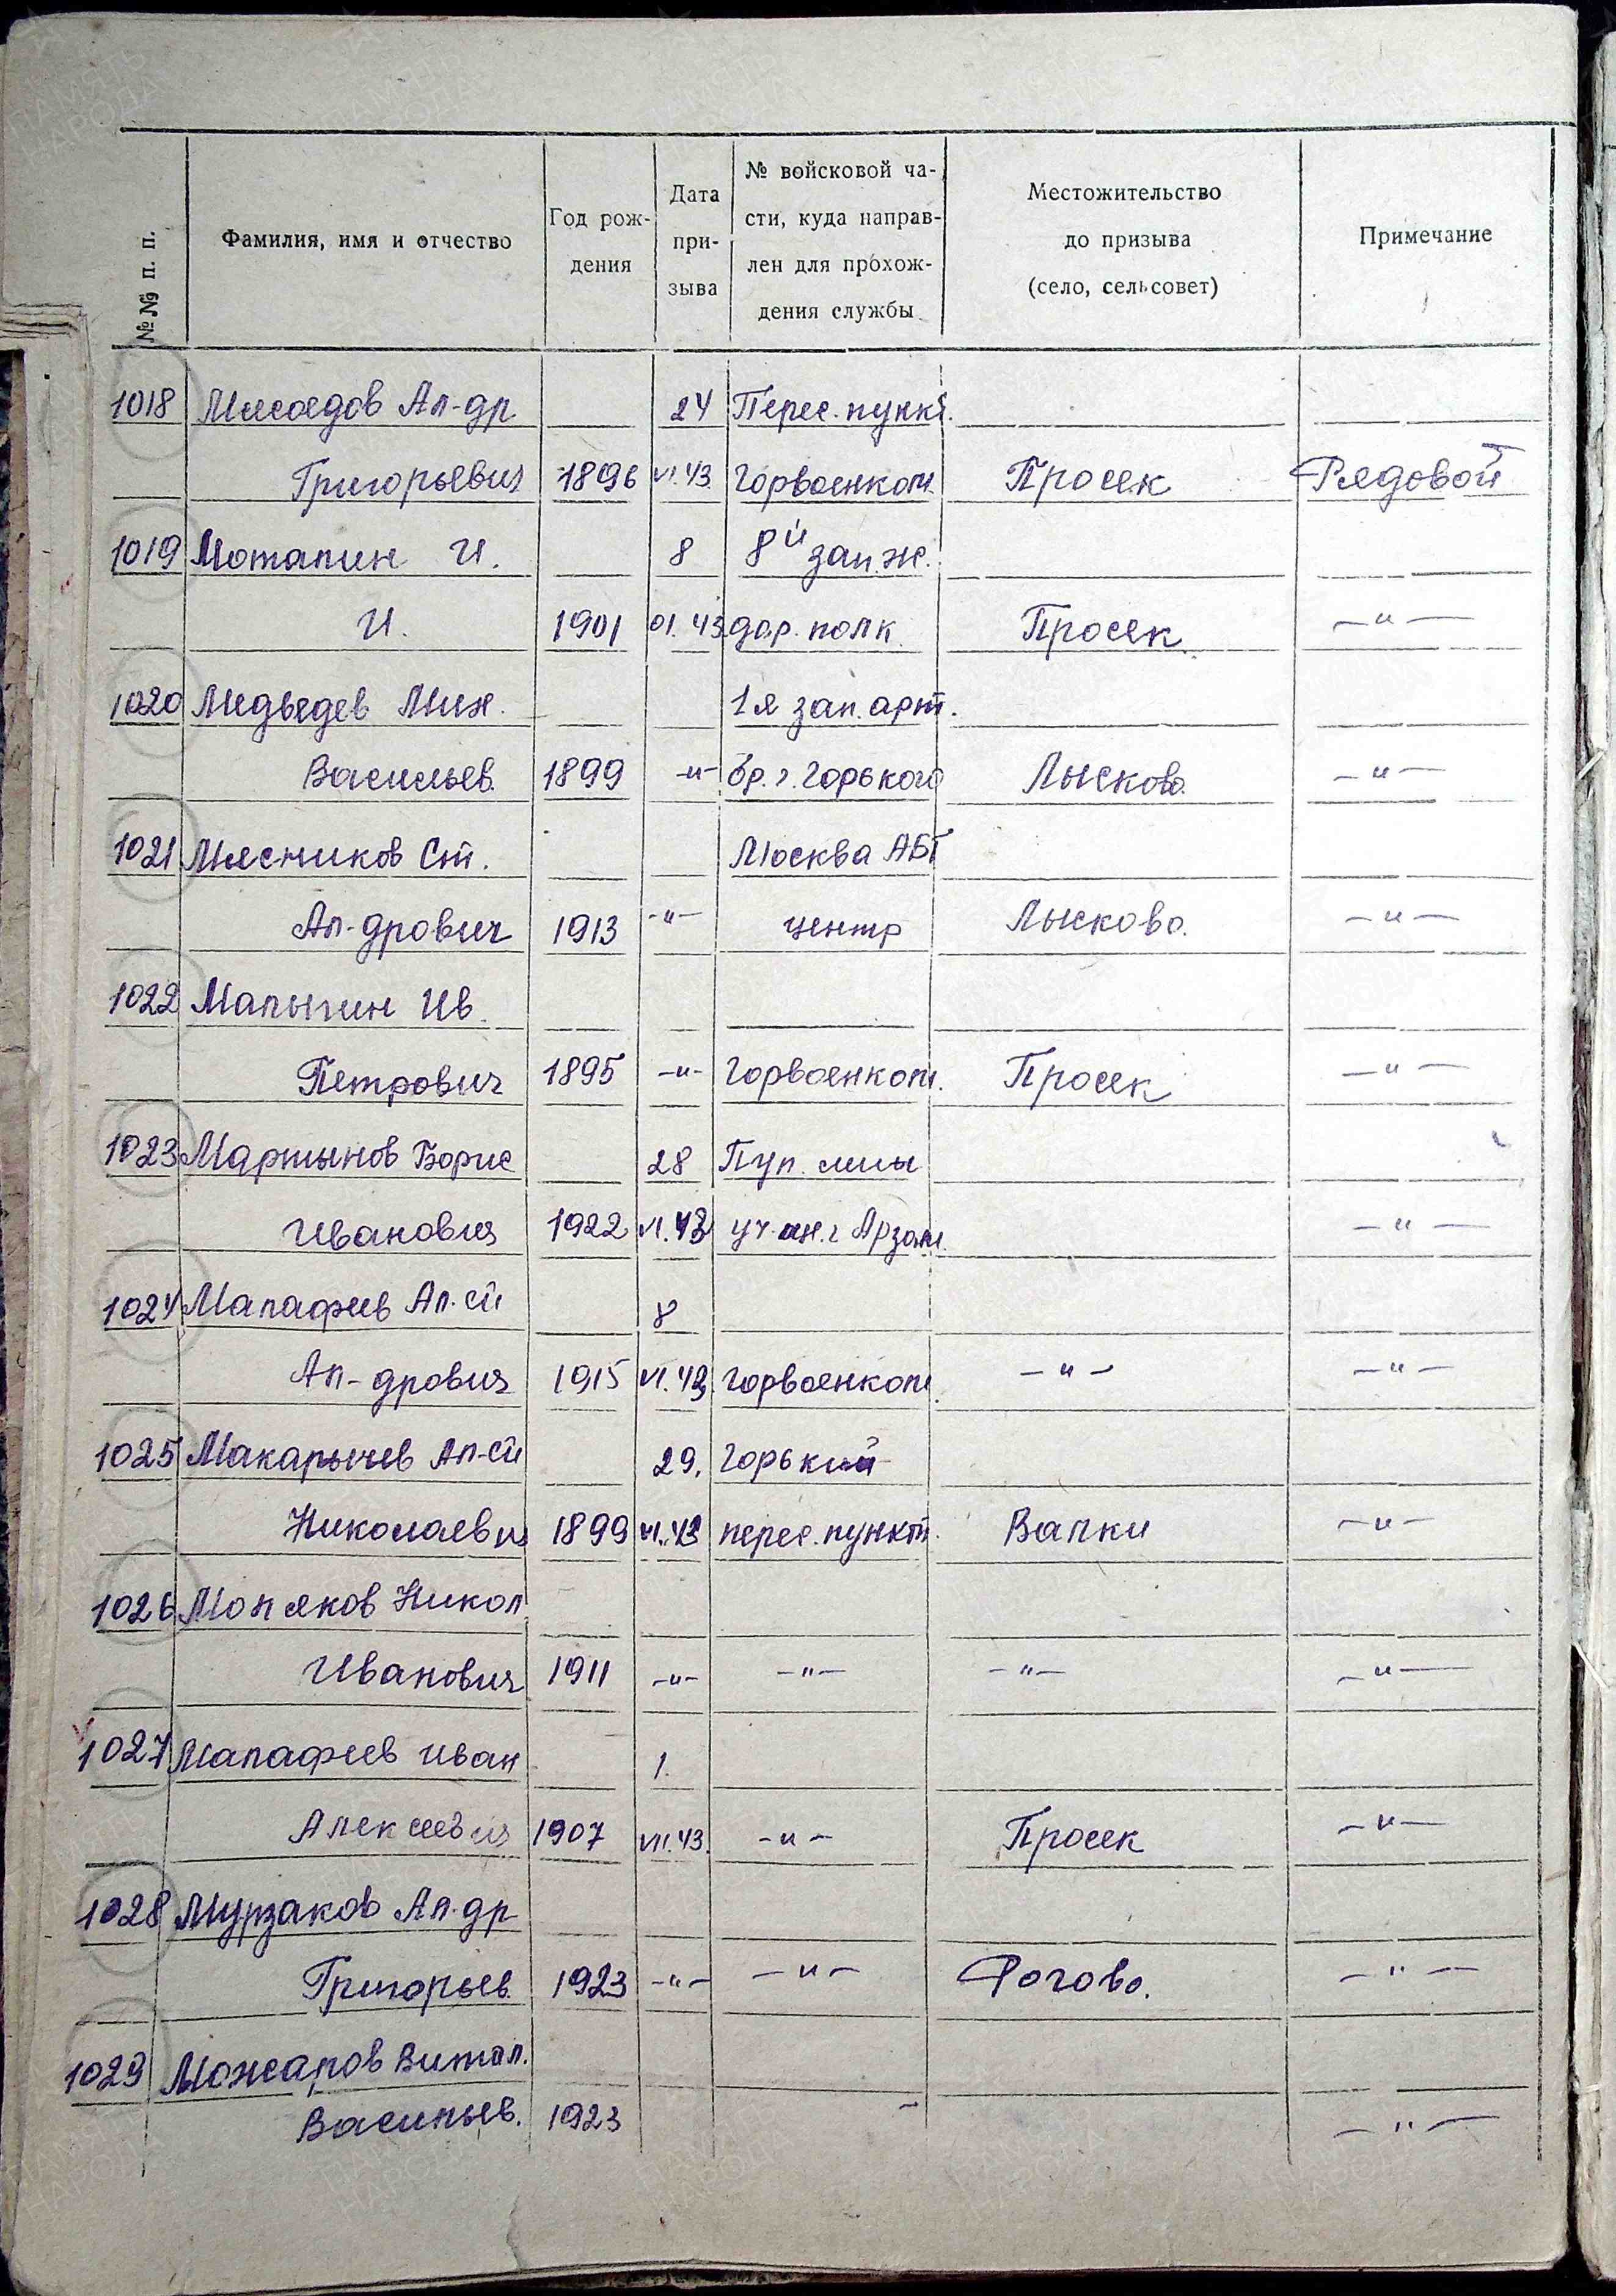 №№ п. п.
Фамилия, имя и отчество
Год рож-
дения
Дата
при-
зыва
№ войсковой ча-
сти, куда направ-
лен для прохож-
дения службы
Местожительство
до призыва
(село, сельсовет)
Примечание
1018 Мясоедов Ал-др 24 Перес. пункт.
Григорьевич 1896 VI.43 Горвоенком. Просек Рядовой
1019 Моталин И. 8 8й зап. ж.
И. 1901 VI.43 дор. полк. Просек. -"-
1020 Медведев Мих. 1я зап. арт.
Васильев. 1899 -"- бр. г. Горького Лысково. -"-
1021 Мясников Ст. Москва АБТ
Ал-дрович 1913 -"- центр Лысково. -"-
1022 Малыгин Ив.
Петрович 1895 -"- Горвоенком. Просек -"-
1023 Мартынов Борис 28 Пул. мин
Иванович 1922 VI.43 уч. г Арзам. -"-
1024 Малафеев Ал. ей 8
Ал-дрович 1915 VI.43 Горвоенком. -"- -"-
1025 Макарычев Ал-ей 29. Горький
Николаевич 1899 VI.43 перес. пункт. Валки -"-
1026 Моляков Никол.
Иванович 1911 -"- -"- -"- -"-
1027 Малафеев Иван 1.
Алексеевич 1907 VII.43. -"- Просек -"-
1028 Мурзаков Ал-др
Григорьев. 1923 -"- -"- Рогово. -"-
1029 Можаров Витал.
Васильев. 1923 -"-
ПАМЯТЬ
НАРОДА